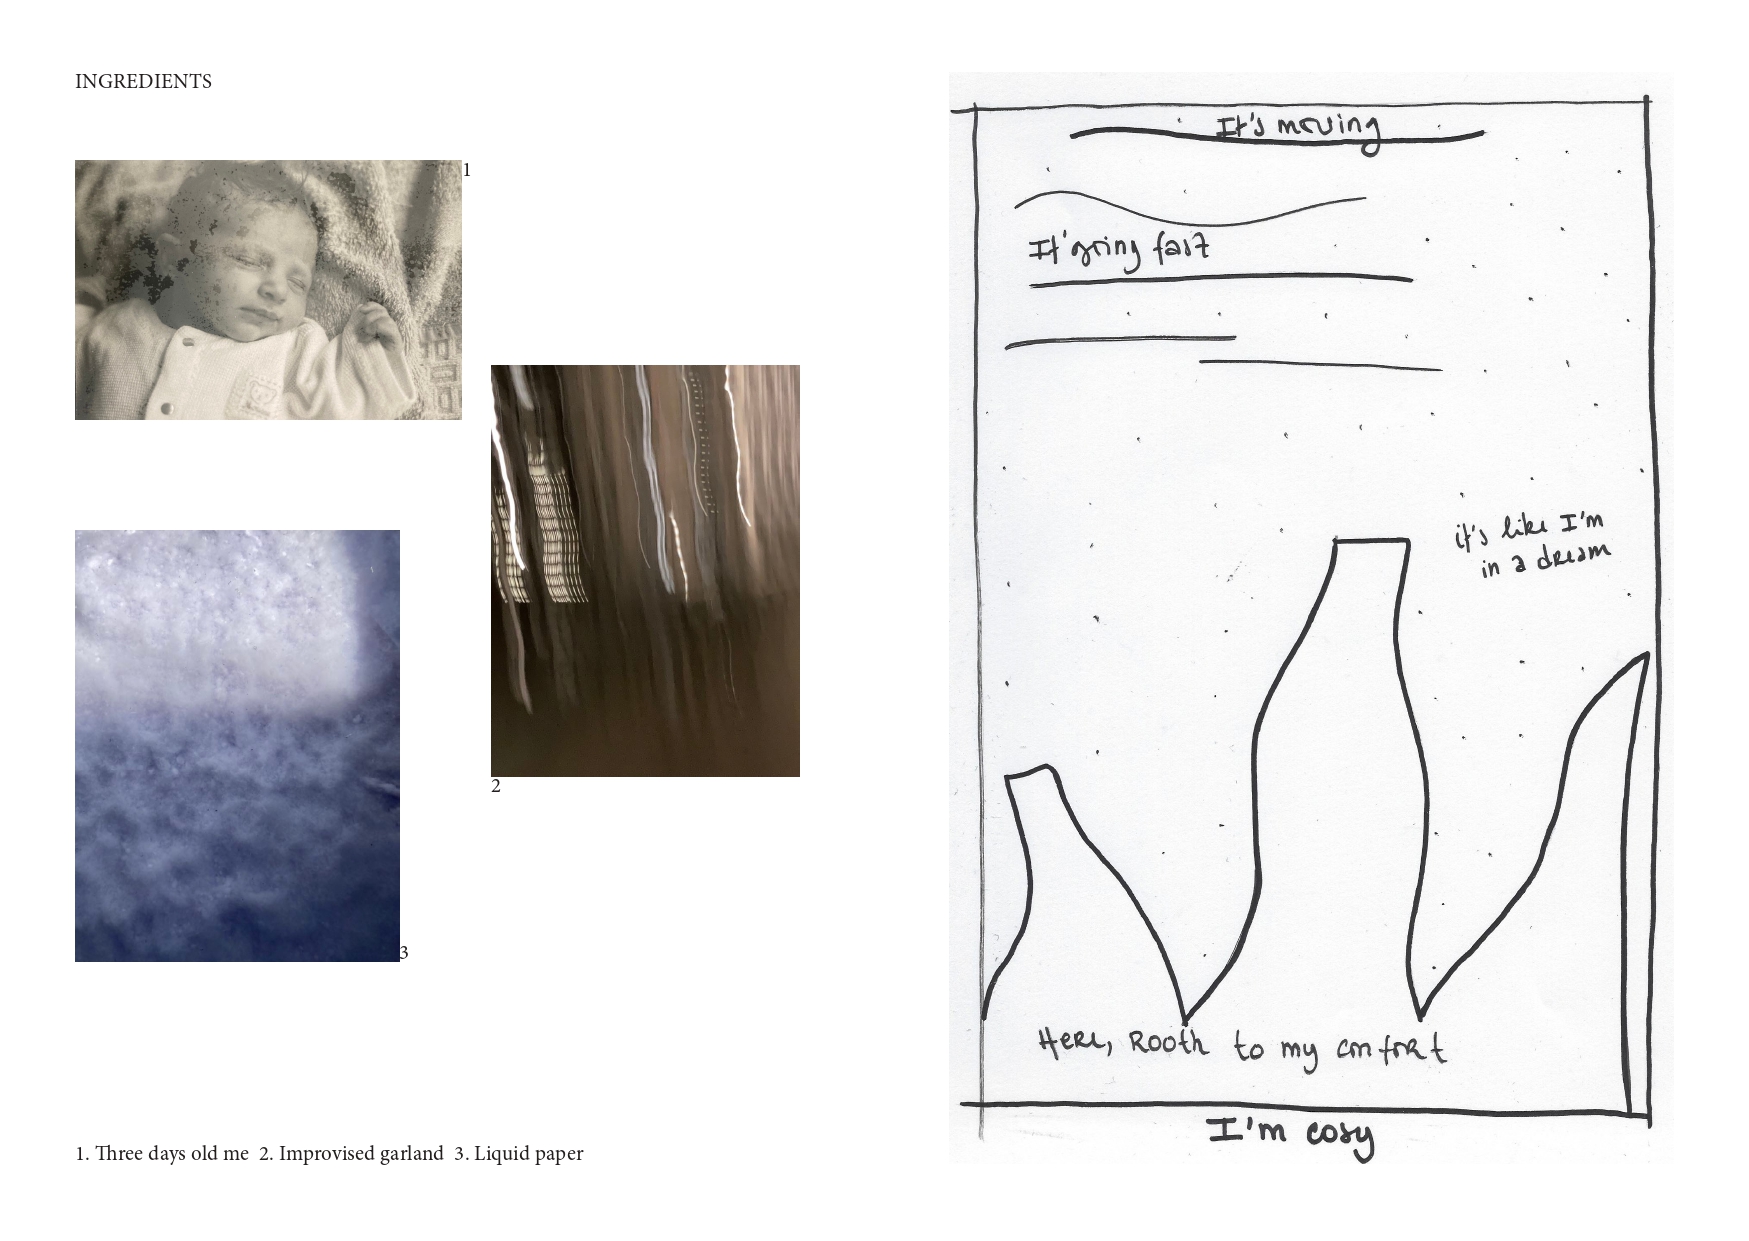 INGREDIENTS
1
2
3
1. Three days old me 2. Improvised garland 3. Liquid paper
It's moving
It'going fast
it's like I'm
in a dream
Here, Rooth to my confort
I'm cosy